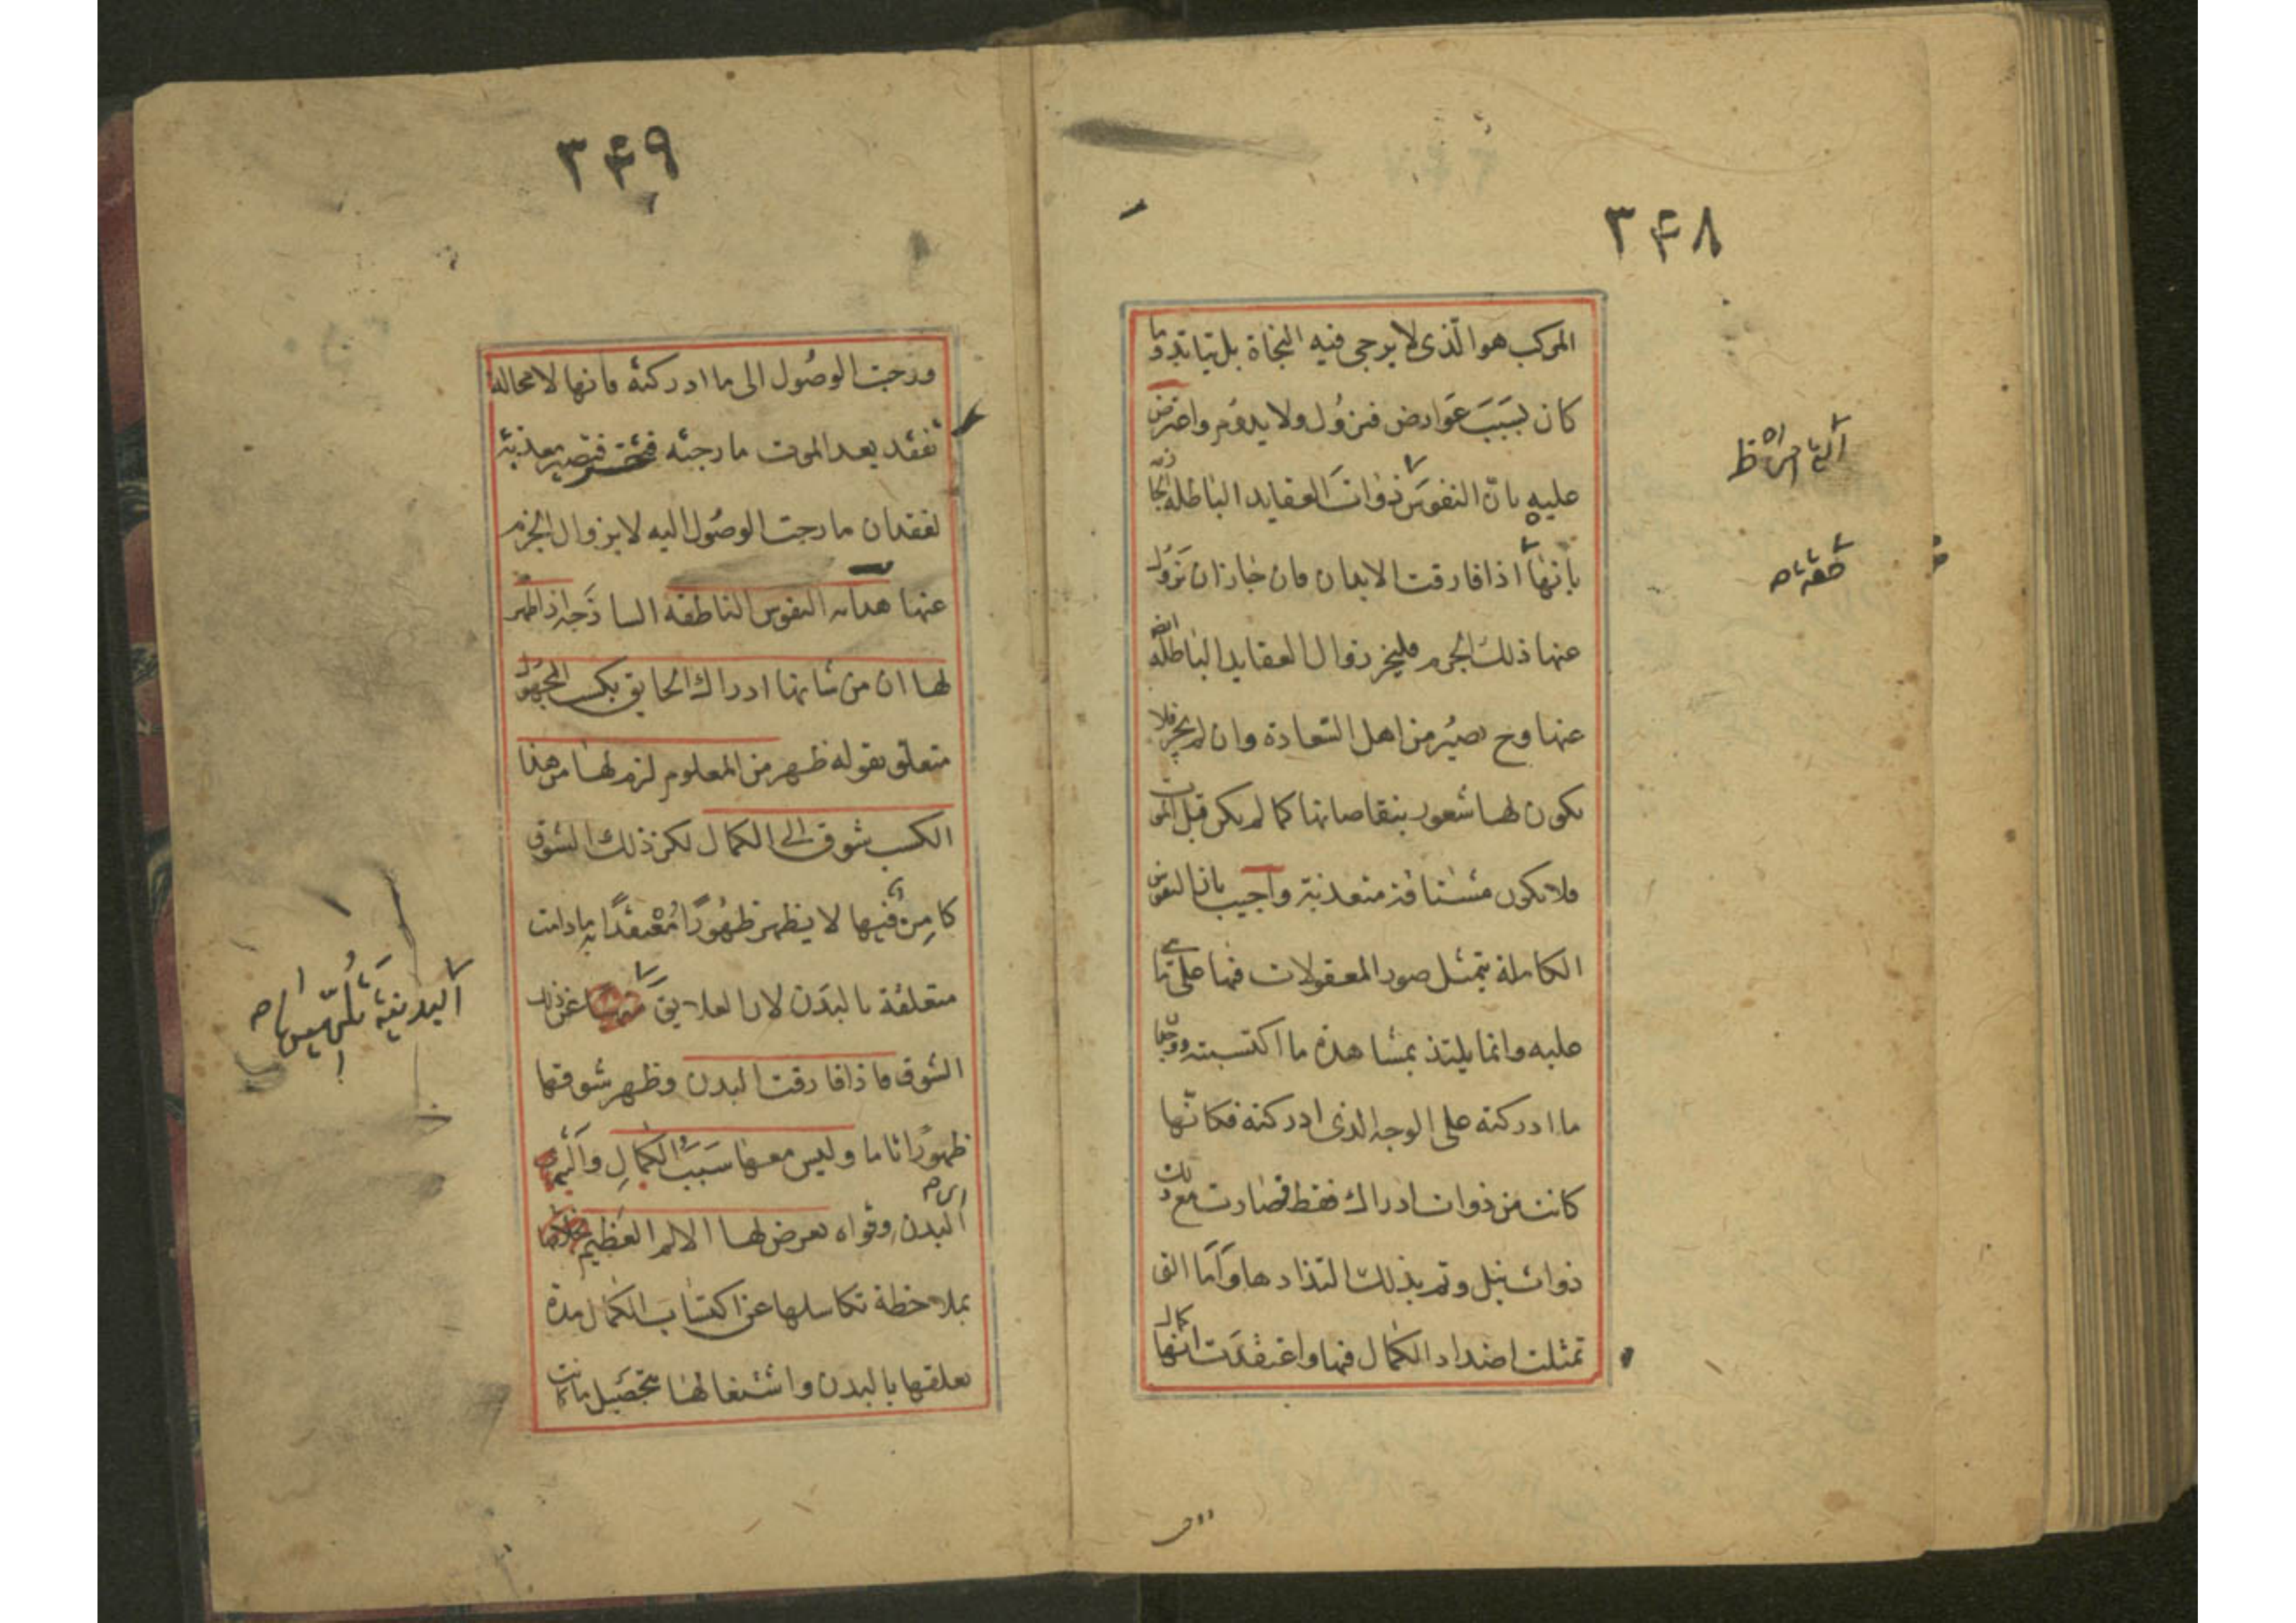 ٣۴٨
المركب هو الّذى لا يرجى فيه النجاة بل يتابد وما
كان بسبب عوارض فيزول ولا يدوم واعترض
عليه بانّ النفوس ذوات العقايد الباطله الجازمة
بانها اذا فارقت الابدان فان جاز ان تزول
عنها ذلك الجزم فليجز زوال العقايد الباطله ايضا
عنها وح تصير من اهل السّعادة وان لم يجز فلا
يكون لها شعور بنقاصاتها كما لم يكن قبل الموت
فلا تكون مشتاقة متعذبة واجيب بان النفوس
الكاملة يتمثل صور المعقولات فيها على ما هى
عليه وانما يلتذ بمشاهدة ما اكتسبته ووجدان
ما ادركته على الوجه الذى ادركته فكانّها
كانت من ذوات ادراك فقط فصارت مع ذلك
ذوات نيل وتم بذلك التذاذها وامّا التى
تمثلت اضداد الكمال فيها واعتقدت انها كمال
٣۴٩
ورجت الوصول الى ما ادركته فانها لا محالة
تفقد بعد الموت ما رجته فتصير معذبة
لفقدان ما رجت الوصول اليه لا بزوال الجزم
عنها هداية النفوس الناطقه الساذجه اذا ظهر
لها ان من شانها ادراك الحقايق بكسب المجهول
متعلق بقوله ظهر من المعلوم لزم لها من هذا
الكسب شوق الى الكمال لكن ذلك الشوق
كامن فيها لا يظهر ظهورًا معتدًا به ما دامت
متعلقة بالبدن لان العلايق عن ذلك
الشوق فاذا فارقت البدن وظهر شوقها
ظهورا تاما وليس معها سبب الكمال وآلته
اى
البدن وقواه يعرض لها الالم العظيم
بملاحظة تكاسلها عن اكتساب الكمال مدة
تعلقها بالبدن واشتغالها بتحصيل ما كانت